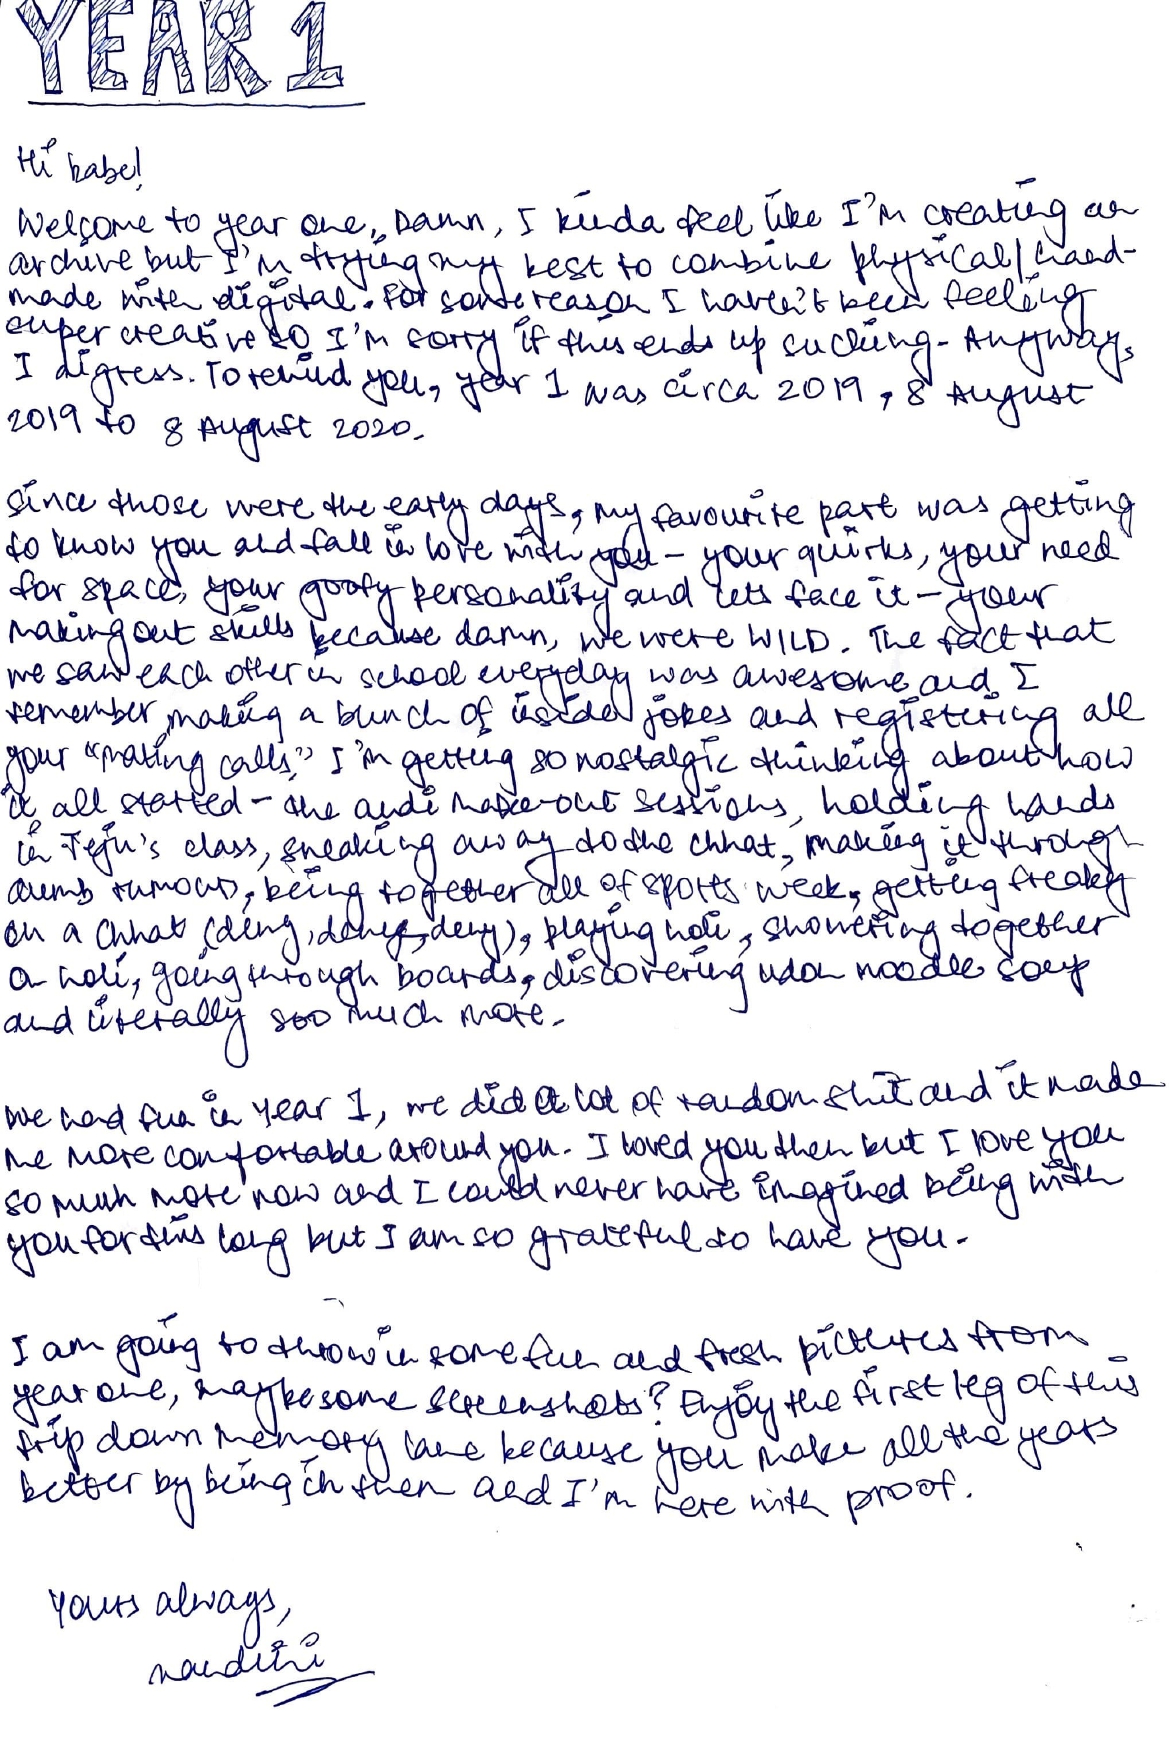 YEAR 1
Hi babe!
Welcome to year one. Damn, I kinda feel like I'm creating an
archive but I'm trying my best to combine physical/hand-
made with digital. For some reason I haven't been feeling
super creative so I'm sorry if this ends up sucking. Anyway,
I digress. To remind you, year 1 was circa 2019, 8 August
2019 to 8 August 2020.
Since those were the early days, my favourite part was getting
to know you and fall in love with you - your quirks, your need
for space, your goofy personality and lets face it - your
making out skills because damn, we were WILD. The fact that
we saw each other in school everyday was awesome and I
remember making a bunch of inside jokes and registering all
your "mating calls." I'm getting so nostalgic thinking about how
it all started - the audi make-out sessions, holding hands
in Teju's class, sneaking away to the chhat, making it through
dumb rumours, being together all of sports week, getting freaky
on a chhat (deny, deny, deny), playing holi, showering together
on holi, going through boards, discovering udon noodle soup
and literally soo much more.
We had fun in Year 1, we did a lot of random shit and it made
me more comfortable around you. I loved you then but I love you
so much more now and I could never have imagined being with
you for this long but I am so grateful to have you.
I am going to throw in some fun and fresh pictures from
year one, maybe some screenshots? Enjoy the first leg of this
trip down memory lane because you make all the years
better by being in them and I'm here with proof.
Yours always,
nandini